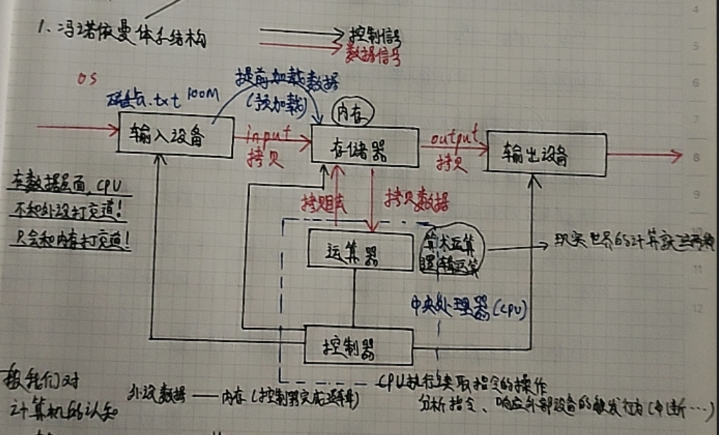 1. 冯诺依曼体系结构
控制信号
数据信号
OS
磁盘a.txt 100M
提前加载数据
(预加载)
内存
输入设备
input
拷贝
存储器
output
拷贝
输出设备
在数据层面, CPU
不和外设打交道!
只会和内存打交道!
拷贝数据
运算器
算术运算
逻辑运算
现实世界的计算就这两类
中央处理器(CPU)
控制器
我们对
计算机的认知
外设数据——内存(控制器完成
CPU执行与读取指令的操作
分析指令、响应外部设备的触发行为(中断…)